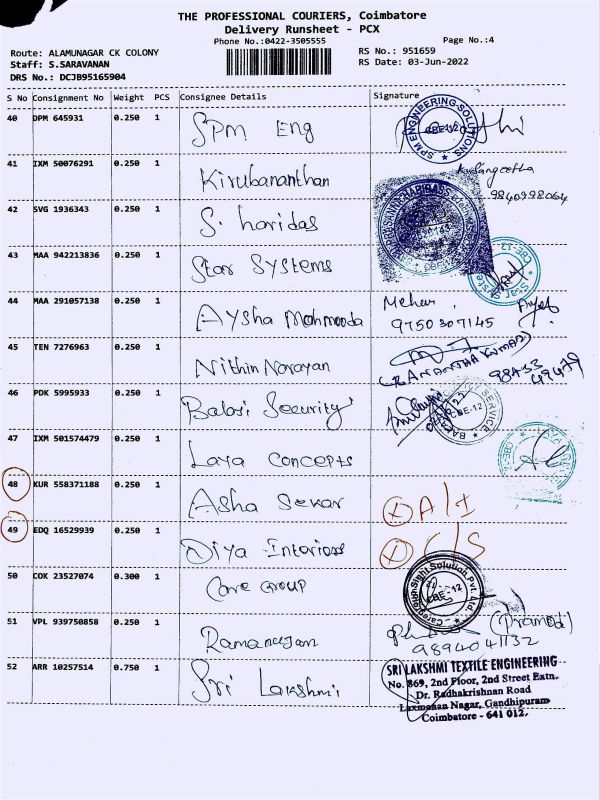 THE PROFESSIONAL COURIERS, Coimbatore
Delivery Runsheet - PCX
Phone No.:0422-3505555 Page No.:4
Route: ALAMUNAGAR CK COLONY RS No.: 951659
Staff: S.SARAVANAN RS Date: 03-Jun-2022
DRS No.: DCJB95165904
S No Consignment No Weight PCS Consignee Details Signature
40 DPM 645931 0.250 1 SPM Eng SPM ENGINEERING SOLUTIONS CBE-12
41 IXM 50076291 0.250 1 Kirubananthan Sangeetha
9840998064
42 SVG 1936343 0.250 1 S. haridas
43 MAA 942213836 0.250 1 Star Systems CBE-12
44 MAA 291057138 0.250 1 Aysha Mahmooda Mehar
9750307145
45 TEN 7276963 0.250 1 Nithin Narayan
46 PDK 5995933 0.250 1 Balaji Security SERVICE CBE-12
47 IXM 501574479 0.250 1 Laya Concepts
48 KUR 558371188 0.250 1 Asha Sekar A/I
49 EDQ 16529939 0.250 1 Diya Interiors C/S
50 COK 23527074 0.300 1 Care Group Caregroup Sight Solution Pvt. Ltd. CBE-12
51 VPL 939750858 0.250 1 Ramanujam (Pramod)
9894041132
52 ARR 10257514 0.750 1 Sri Lakshmi SRI LAKSHMI TEXTILE ENGINEERING
No. 869, 2nd Floor, 2nd Street Extn.
Dr. Radhakrishnan Road
Laxmanan Nagar, Gandhipuram
Coimbatore - 641 012.